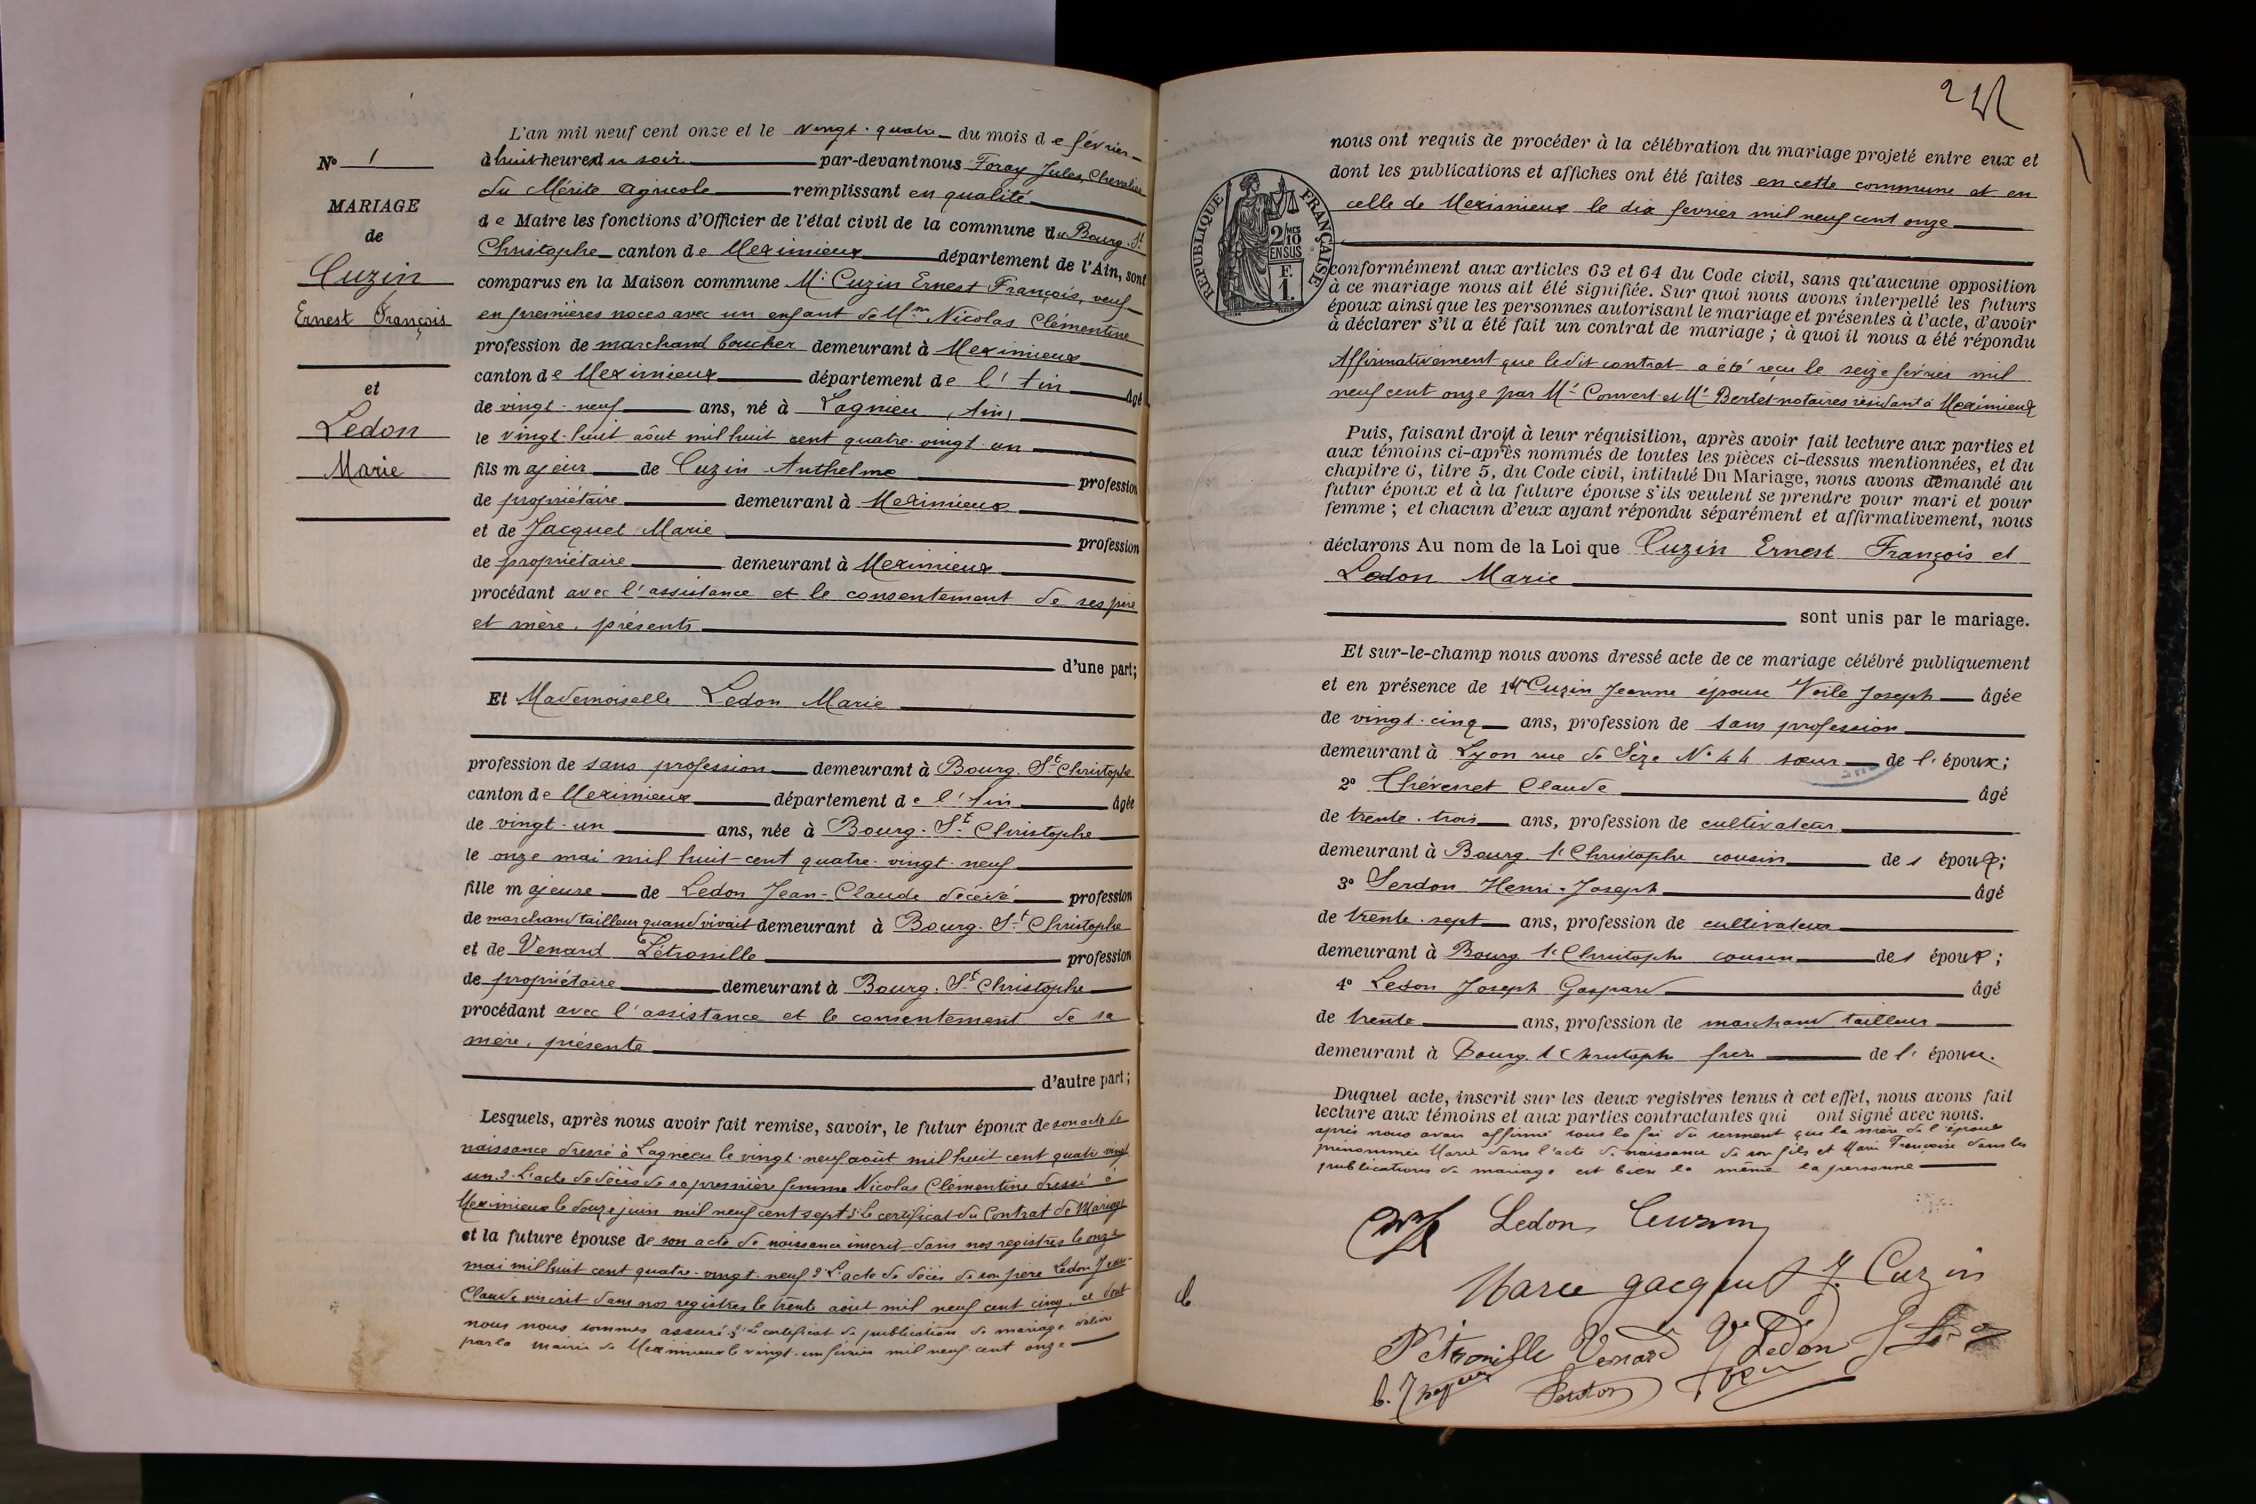 N° 1
MARIAGE
de
Cuzin
Ernest François
et
Ledon
Marie
L'an mil neuf cent onze et le vingt-quatre du mois de février
à huit heures du soir par-devant nous Foray Jules, Chevalier
du Mérite Agricole remplissant en qualité
de Maire les fonctions d'Officier de l'état civil de la commune de Bourg-St
Christophe canton de Meximieux département de l'Ain, sont
comparus en la Maison commune Mr Cuzin Ernest François, veuf
en premières noces avec un enfant de Mme Nicolas Clémentine
profession de marchand boucher demeurant à Meximieux
canton de Meximieux département de l'Ain âgé
de vingt-neuf ans, né à Lagnieu (Ain)
le vingt-huit août mil huit cent quatre-vingt-un
fils majeur de Cuzin Anthelme profession
de propriétaire demeurant à Meximieux
et de Jacquet Marie profession
de propriétaire demeurant à Meximieux
procédant avec l'assistance et le consentement de ses père
et mère, présents
d'une part;
Et Mademoiselle Ledon Marie
profession de sans profession demeurant à Bourg-St Christophe
canton de Meximieux département de l'Ain âgée
de vingt-un ans, née à Bourg-St Christophe
le onze mai mil huit-cent quatre-vingt-neuf
fille majeure de Ledon Jean-Claude décédé profession
de marchand tailleur quand vivait demeurant à Bourg-St Christophe
et de Venard Pétronille profession
de propriétaire demeurant à Bourg-St Christophe
procédant avec l'assistance et le consentement de sa
mère, présente
d'autre part;
Lesquels, après nous avoir fait remise, savoir, le futur époux de son acte de
naissance dressé à Lagnieu le vingt-neuf août mil huit cent quatre vingt
un 2° L'acte de décès de sa première femme Nicolas Clémentine dressé à
Meximieux le douze juin mil neuf cent sept 3° le certificat du Contrat de Mariage
et la future épouse de son acte de naissance inscrit dans nos registres le onze
mai mil huit cent quatre-vingt-neuf 2° L'acte de décès de son père Ledon Jean-
Claude inscrit dans nos registres le trente août mil neuf cent cinq, ce dont
nous nous sommes assuré 3° Le certificat de publication de mariage délivré
par la mairie de Meximieux le vingt-un février mil neuf cent onze
RÉPUBLIQUE FRANÇAISE
2/10 MES
EN SUS
F.
1.
nous ont requis de procéder à la célébration du mariage projeté entre eux et
dont les publications et affiches ont été faites en cette commune et en
celle de Meximieux le dix février mil neuf cent onze
conformément aux articles 63 et 64 du Code civil, sans qu'aucune opposition
à ce mariage nous ait été signifiée. Sur quoi nous avons interpellé les futurs
époux ainsi que les personnes autorisant le mariage et présentes à l'acte, d'avoir
à déclarer s'il a été fait un contrat de mariage ; à quoi il nous a été répondu
Affirmativement que ledit contrat a été reçu le seize février mil
neuf cent onze par Me Convert et Me Bertet notaires résidant à Meximieux
Puis, faisant droit à leur réquisition, après avoir fait lecture aux parties et
aux témoins ci-après nommés de toutes les pièces ci-dessus mentionnées, et du
chapitre 6, titre 5, du Code civil, intitulé Du Mariage, nous avons demandé au
futur époux et à la future épouse s'ils veulent se prendre pour mari et pour
femme ; et chacun d'eux ayant répondu séparément et affirmativement, nous
déclarons Au nom de la Loi que Cuzin Ernest François et
Ledon Marie
sont unis par le mariage.
Et sur-le-champ nous avons dressé acte de ce mariage célébré publiquement
et en présence de 1° Cuzin Jeanne épouse Voile Joseph âgée
de vingt-cinq ans, profession de sans profession
demeurant à Lyon rue de Sèze N° 44 sœur de l'époux;
2° Chévenet Claude âgé
de trente-trois ans, profession de cultivateur
demeurant à Bourg St Christophe cousin des époux;
3° Serdon Henri-Joseph âgé
de trente-sept ans, profession de cultivateur
demeurant à Bourg St Christophe cousin des époux;
4° Ledon Joseph Gaspard âgé
de trente ans, profession de marchand tailleur
demeurant à Bourg St Christophe frère de l'épouse.
Duquel acte, inscrit sur les deux registres tenus à cet effet, nous avons fait
lecture aux témoins et aux parties contractantes qui ont signé avec nous.
après nous avoir affirmé sous la foi du serment que la mère de l'époux
prénommée Marie dans l'acte de naissance de son fils et Marie Françoise dans les
publications de mariage est bien la même la personne
Ledon Cuzin
Marie Jacquet J. Cuzin
Pétronille Venard Ve Ledon
Serdon